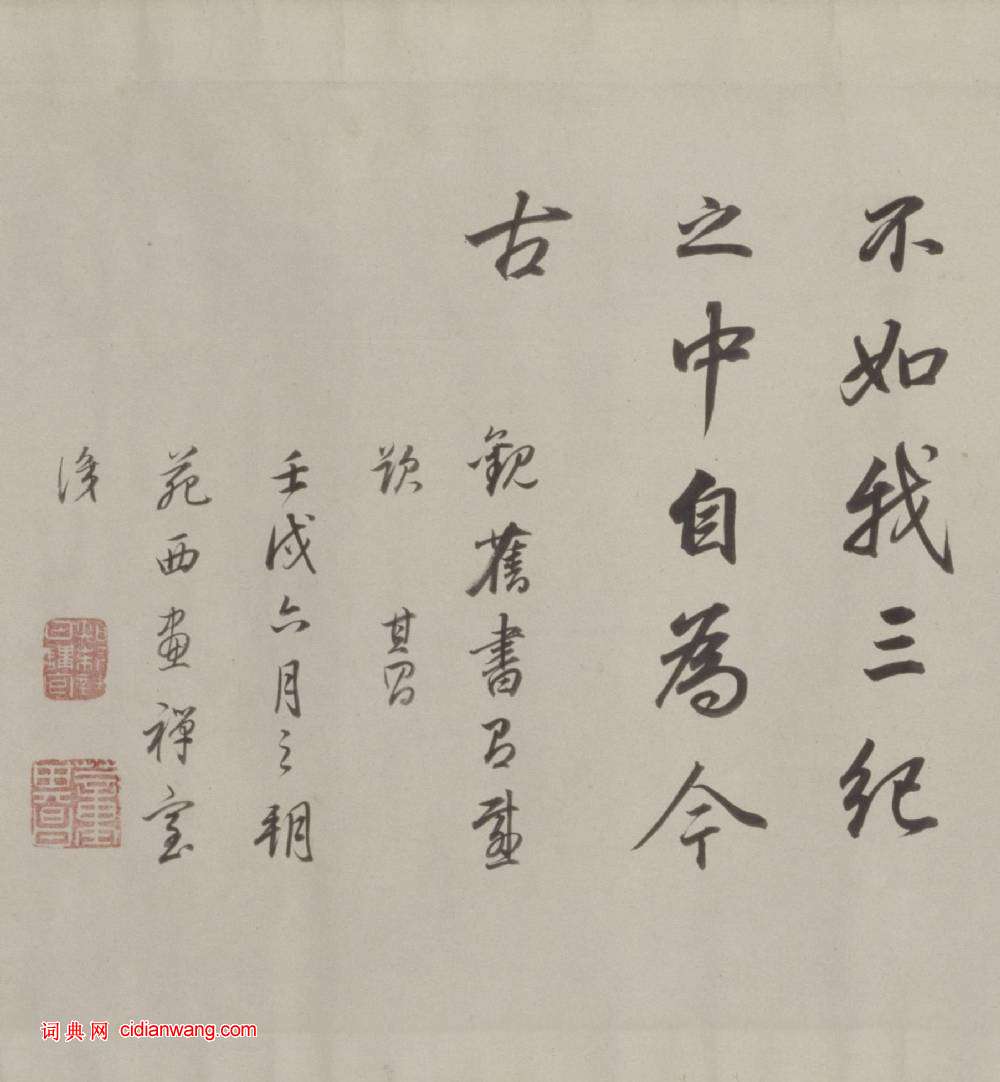 不如我三紀
之中自為今
古
觀舊書有感
其昌
壬戌六月之朔
苑西畫禪室
知制誥日講官
词典网 cidianwang.com